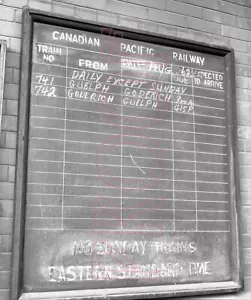 CANADIAN PACIFIC RAILWAY
TRAIN NO FROM DUE EXPECTED TO ARRIVE
DAILY EXCEPT SUNDAY
741 GUELPH GODERICH
742 GODERICH GUELPH 415P
NO SUNDAY TRAINS
EASTERN STANDARD TIME